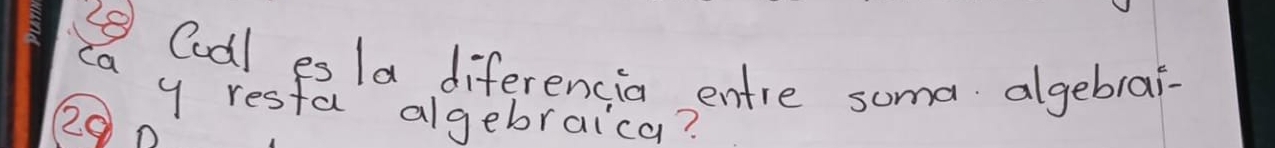 28 Cuál es la diferencia entre suma algebrai-
ca y resta algebraica?
29